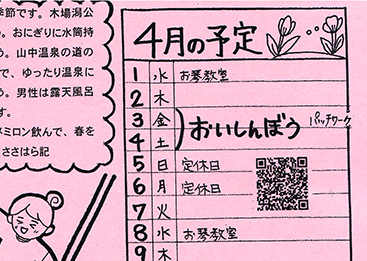 季節です。木場潟公
う。おにぎりに水筒持
う。山中温泉の道の
で、ゆったり温泉に
う。男性は露天風呂
す。
ネミロン飲んで、春を
ささはら記
4月の予定
1 水 お琴教室
2 木
3 金 おいしんぼう パッチワーク
4 土
5 日 定休日
6 月 定休日
7 火
8 水 お琴教室
9 木